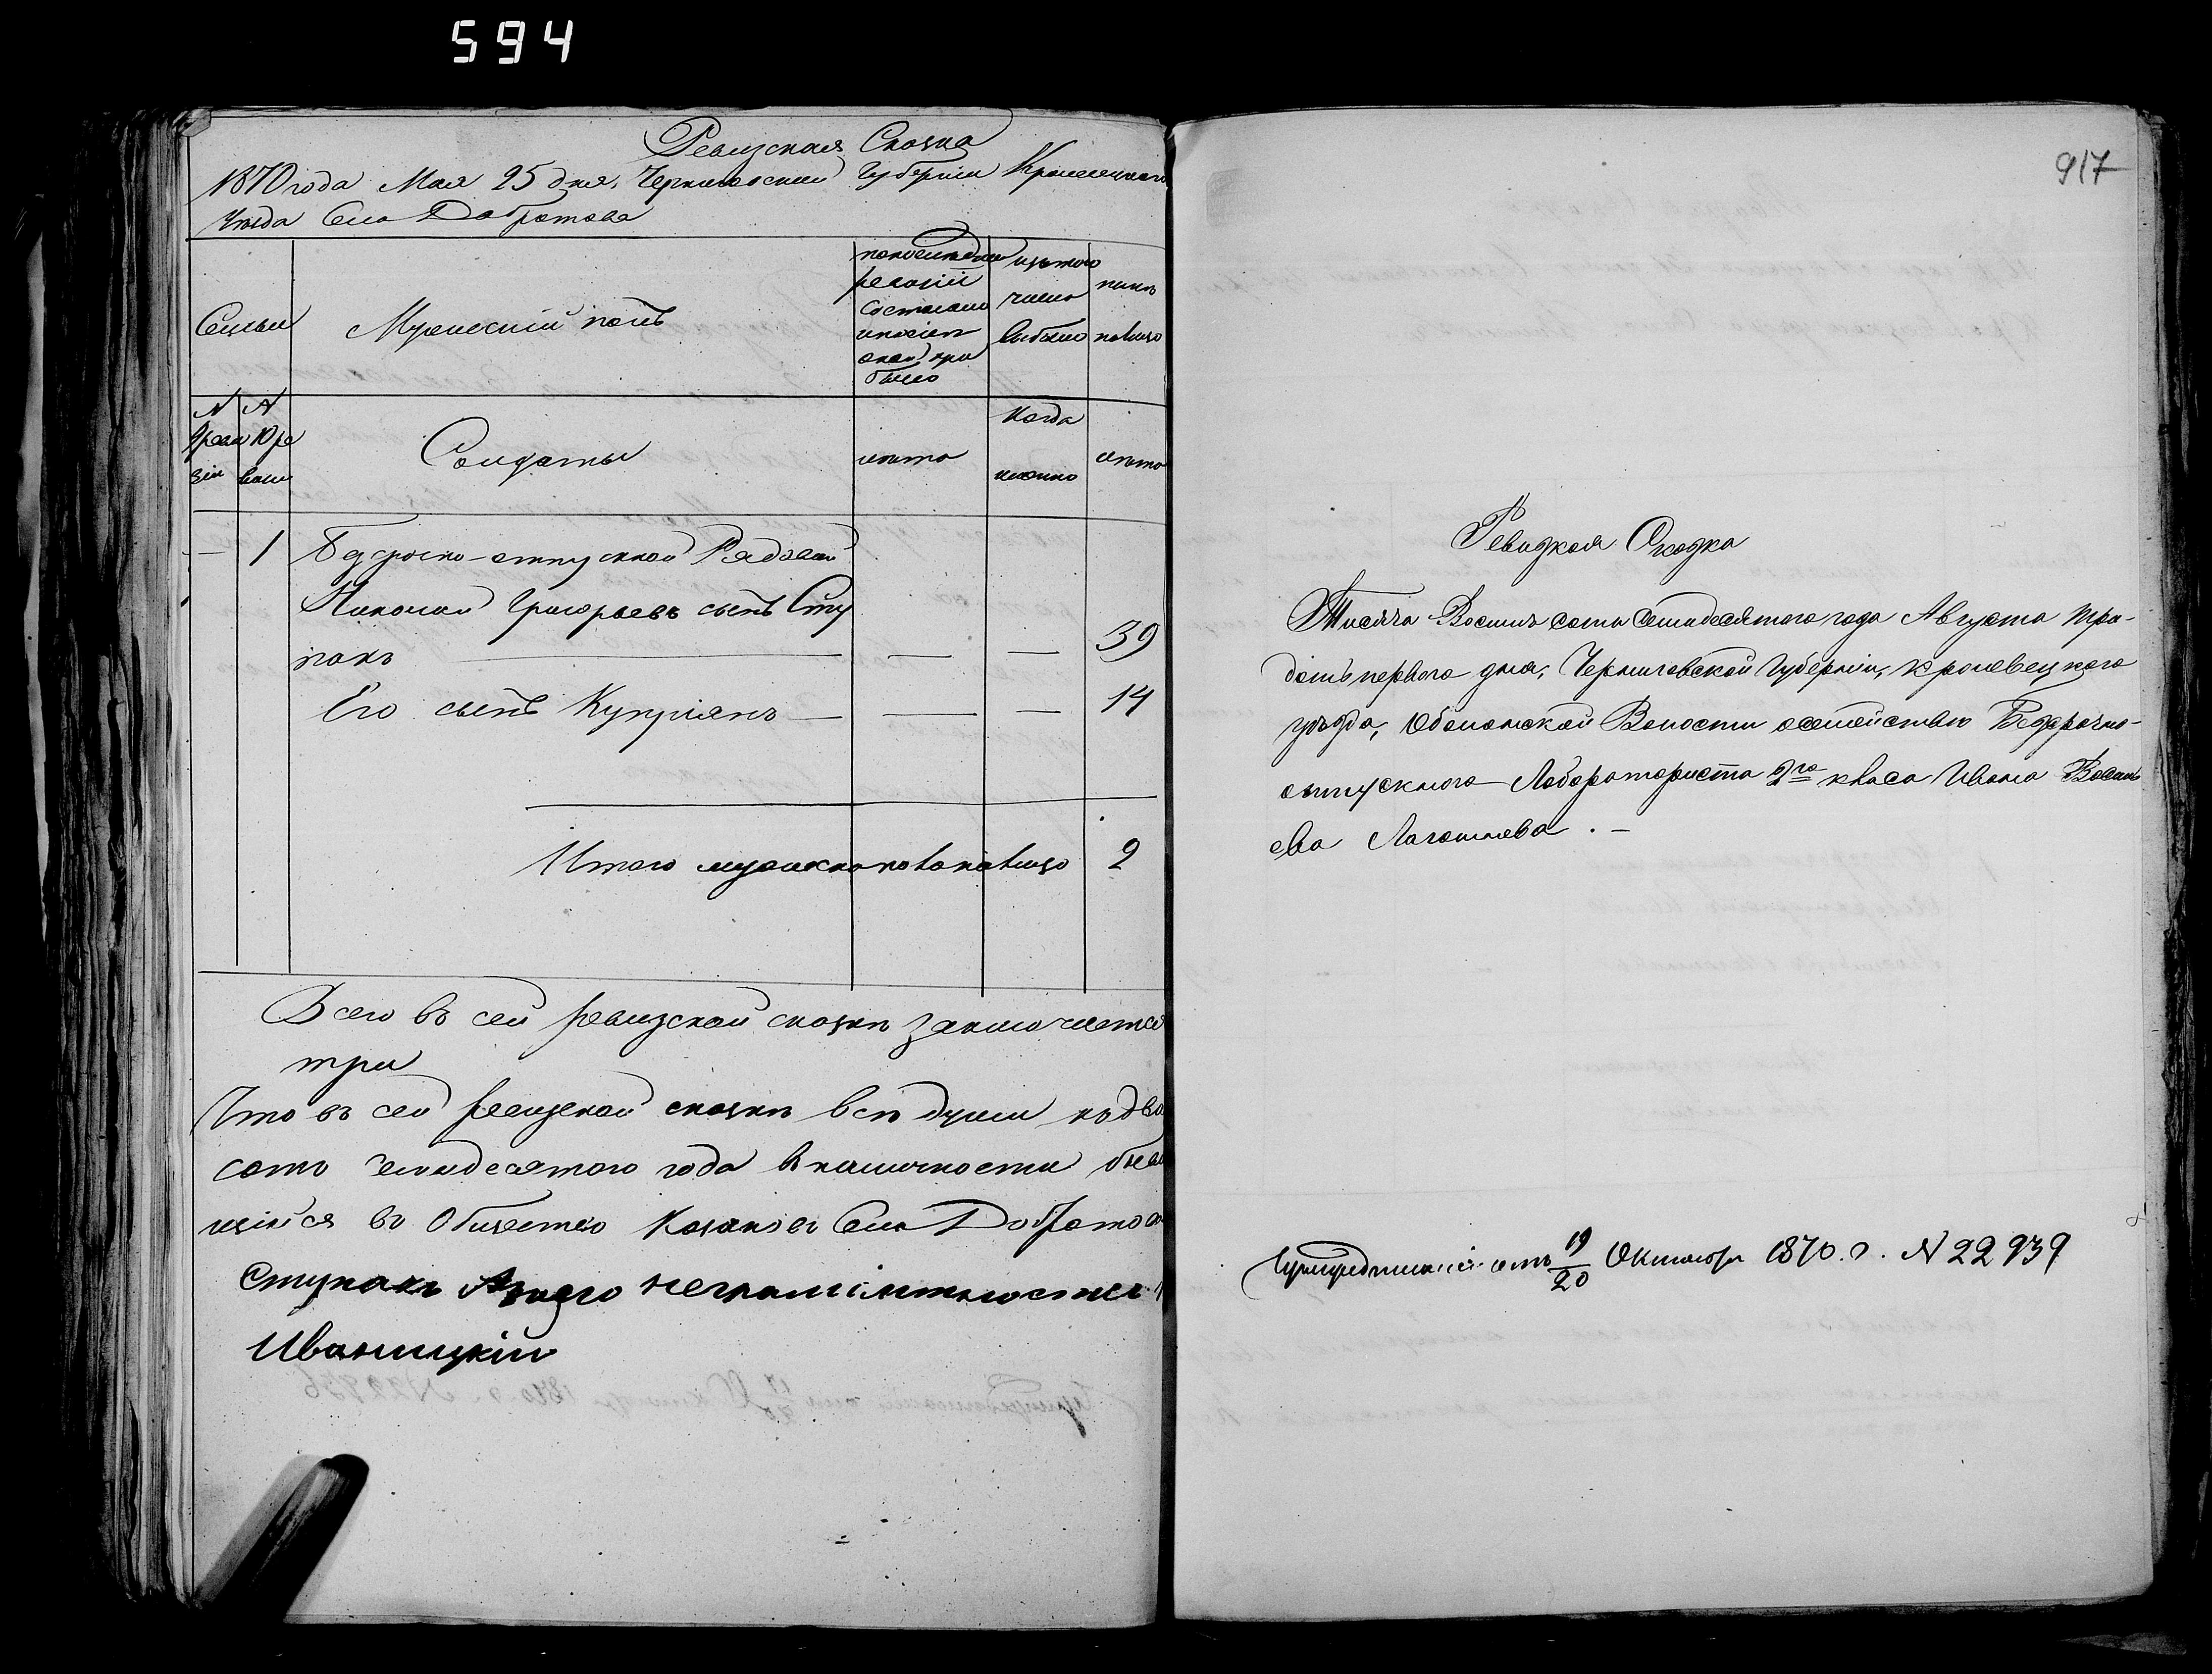 594
Ревизская Сказка
1870 года Мая 25 дня, Черниговской Губернии Кролевецкаго
Уезда Село Добротова
Семьи
Мужескій полъ
по последней
ревизіи
состояло
и после
оной при
было
изъ того
числа
выбыло
ныне
налицо
№ 9 реви зіи
№ 10 ре визіи
Солдаты
лета
Когда
именно
лета
— 1 Безсрочно-отпускной Рядовой
Николай Григорьевъ сынъ Сту
пакъ — — — 39
Его сынъ Купріянъ — — — 14
Итого мужеска пола налицо 2
Всего въ сей ревизской сказке заключается
три
Что въ сей ревизской сказке все души
сотъ семидесятого года въ наличности
въ Общество Козаковъ Села
Ступакъ А за его неграмотностью
Иваницкій
917
Ревизкая Сказка
Тисяча Восимъ сотъ Семидесятого года Августа три-
дсать первого дня, Черниговской Губерніи, Кролевецкого
уезда, Оболонской Волости о семействе Безсрочно-
отпускного Лабораториста 2го класа Ивана Василь
ева Логвинова . —
отъ 19/20 Октября 1870. г. № 22939